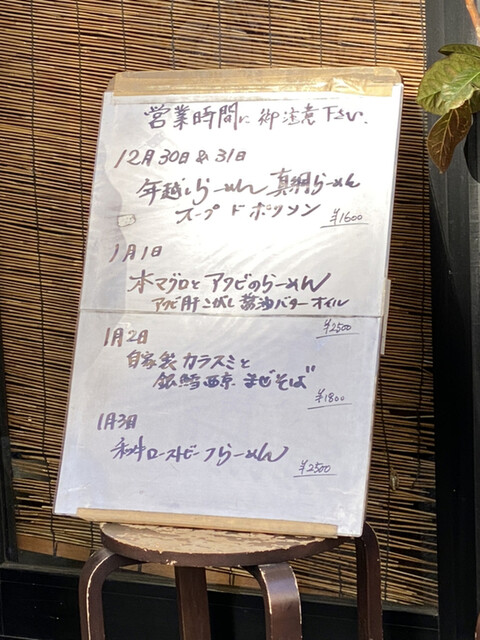 営業時間に御注意下さい.
12月30日&31日
年越しらーめん 真鯛らーめん
スープ ド ポワソン ¥1600
1月1日
本マグロと アワビのらーめん
アワビ肝こがし醤油バターオイル
¥2500
1月2日
自家製カラスミと
銀鱈西京 まぜそば
¥1800
1月3日
和牛ローストビーフらーめん
¥2500